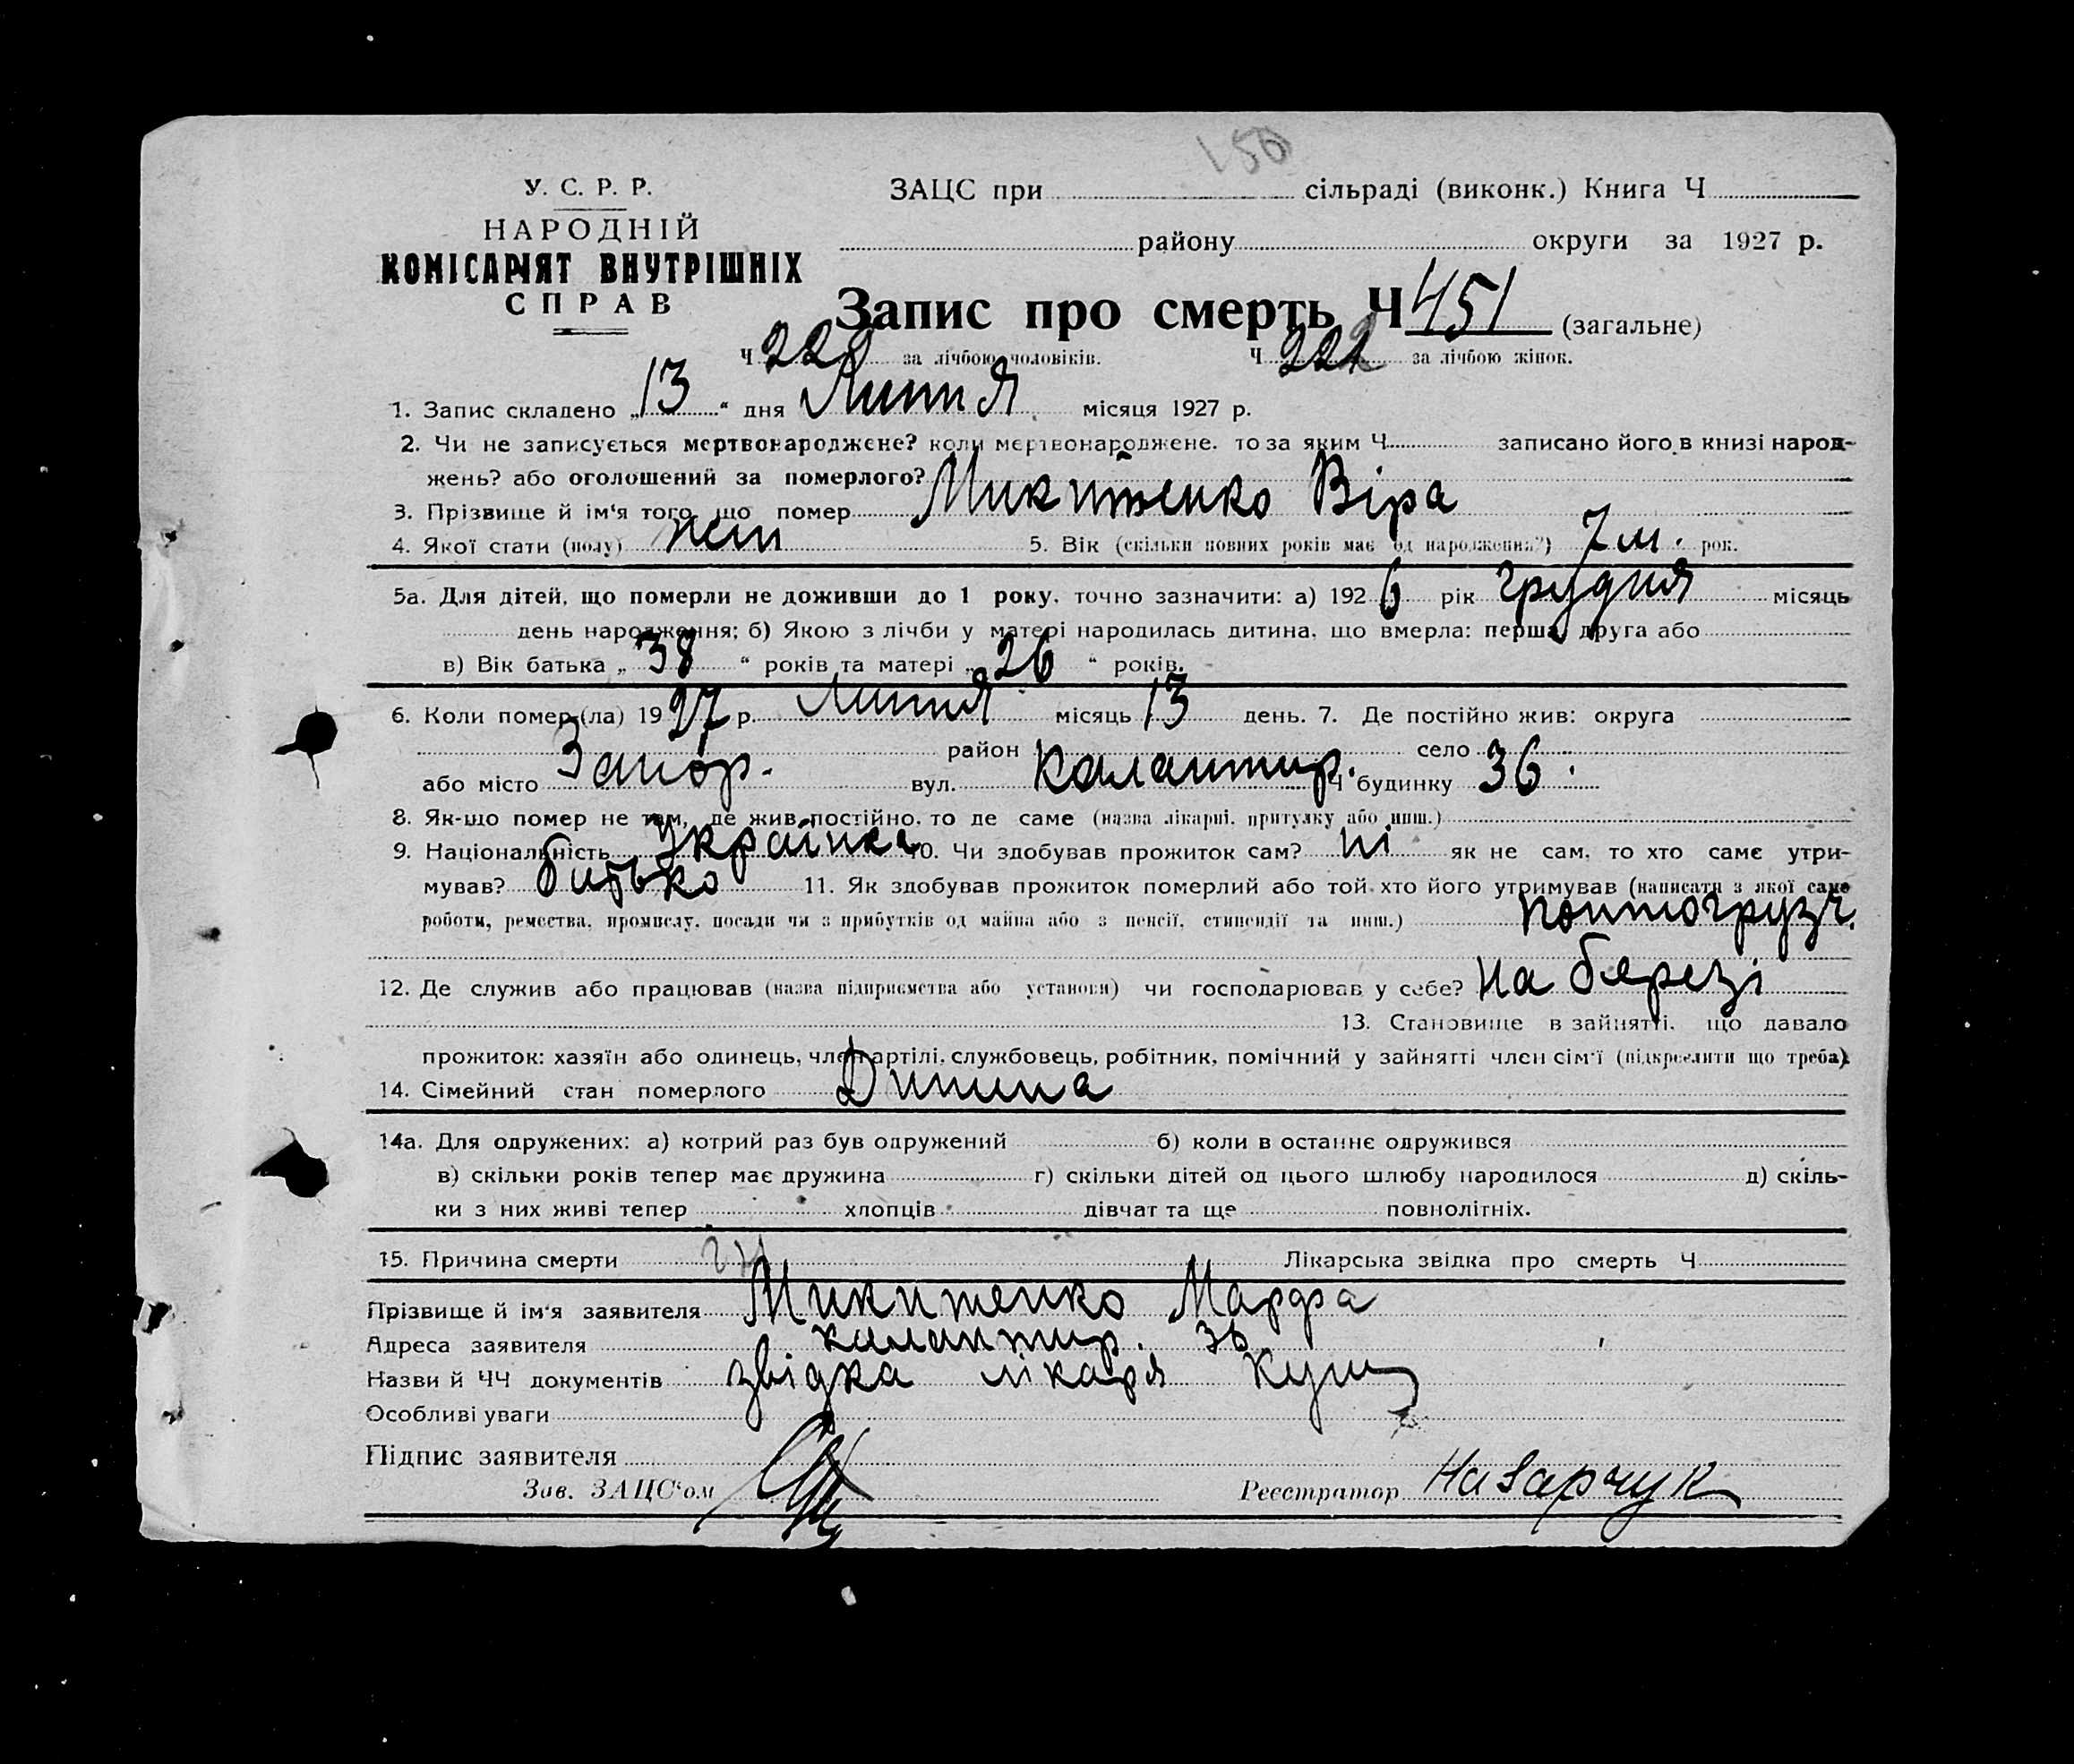 150
У. С. Р. Р.
НАРОДНІЙ
КОМІСАРІЯТ ВНУТРІШНІХ
СПРАВ
ЗАЦС при сільраді (виконк.) Книга Ч
району округи за 1927 р.
Запис про смерть Ч 451 (загальне)
Ч за лічбою чоловіків. Ч 222 за лічбою жінок.
1. Запис складено „13“ дня Липня місяця 1927 р.
2. Чи не записується мертвонароджене? коли мертвонароджене, то за яким Ч записано його в книзі народ-
жень? або оголошений за померлого?
3. Прізвище й ім'я того, що помер Микитенко Віра
4. Якої стати (полу) жен 5. Вік (скільки повних років має од народження?) 7 м. рок.
5а. Для дітей, що померли не доживши до 1 року, точно зазначити: а) 1926 рік грудня місяць
день народження; б) Якою з лічби у матері народилась дитина, що вмерла: перша, друга або
в) Вік батька „38“ років та матері „26“ років.
6. Коли помер (ла) 1927 р. Липня місяць 13 день. 7. Де постійно жив: округа
район село
або місто Запор. вул. Калантир. Ч будинку 36.
8. Як-що помер не там, де жив постійно, то де саме (назва лікарні, притулку або инш.)
9. Національність Українка 10. Чи здобував прожиток сам? ні як не сам, то хто саме утри-
мував? батько 11. Як здобував прожиток померлий або той хто його утримував (написати з якої саме
роботи, ремества, промислу, посади чи з прибутків од майна або з пенсії, стипендії та инш.)
12. Де служив або працював (назва підприємства або установи) чи господарював у себе? на березі
13. Становище в зайнятті, що давало
прожиток: хазяїн або одинець, член артілі, службовець, робітник, помічний у зайнятті член сім'ї (підкреслити що треба).
14. Сімейний стан померлого Дитина
14а. Для одружених: а) котрий раз був одружений б) коли в останнє одружився
в) скільки років тепер має дружина г) скільки дітей од цього шлюбу народилося д) скіль-
ки з них живі тепер хлопців дівчат та ще повнолітніх.
15. Причина смерти Лікарська звідка про смерть Ч
Прізвище й ім'я заявителя Микитенко Марфа
Адреса заявителя калантир. 36
Назви й ЧЧ документів звідка лікаря
Особливі уваги
Підпис заявителя
Зав. ЗАЦС'ом Реєстратор Назарчук